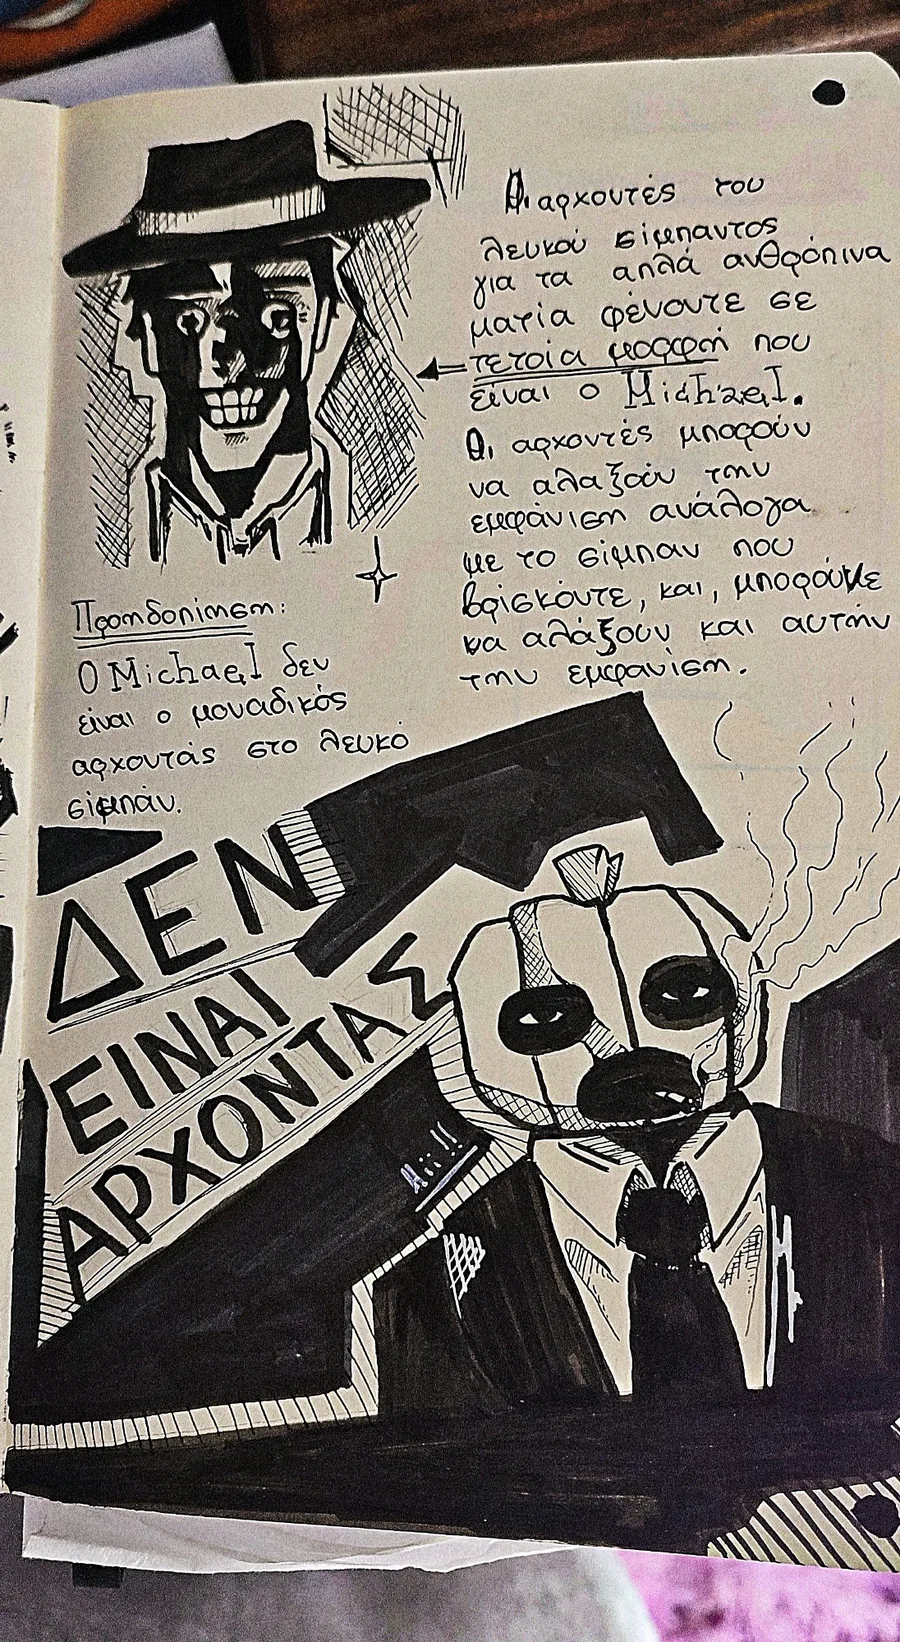 Οι αρχοντές του
λευκού σίμπαντος
για τα απλά ανθρόπινα
ματία φένουτε σε
τετοία μορφή που
είναι ο Michael.
Οι αρχοντές μπορούν
να αλαξούν την
εμφάνιση ανάλογα
με το σίμπαν που
βρίσκόντε, και, μπορούμε
να αλάξουν και αυτήν
την εμφανίση.
Προηδοπίηση:
Ο Michael δεν
είναι ο μοναδικός
αρχοντάς στο λευκό
σίμπάν.
ΔΕΝ
ΕΙΝΑΙ
ΑΡΧΟΝΤΑΣ
Hi!!